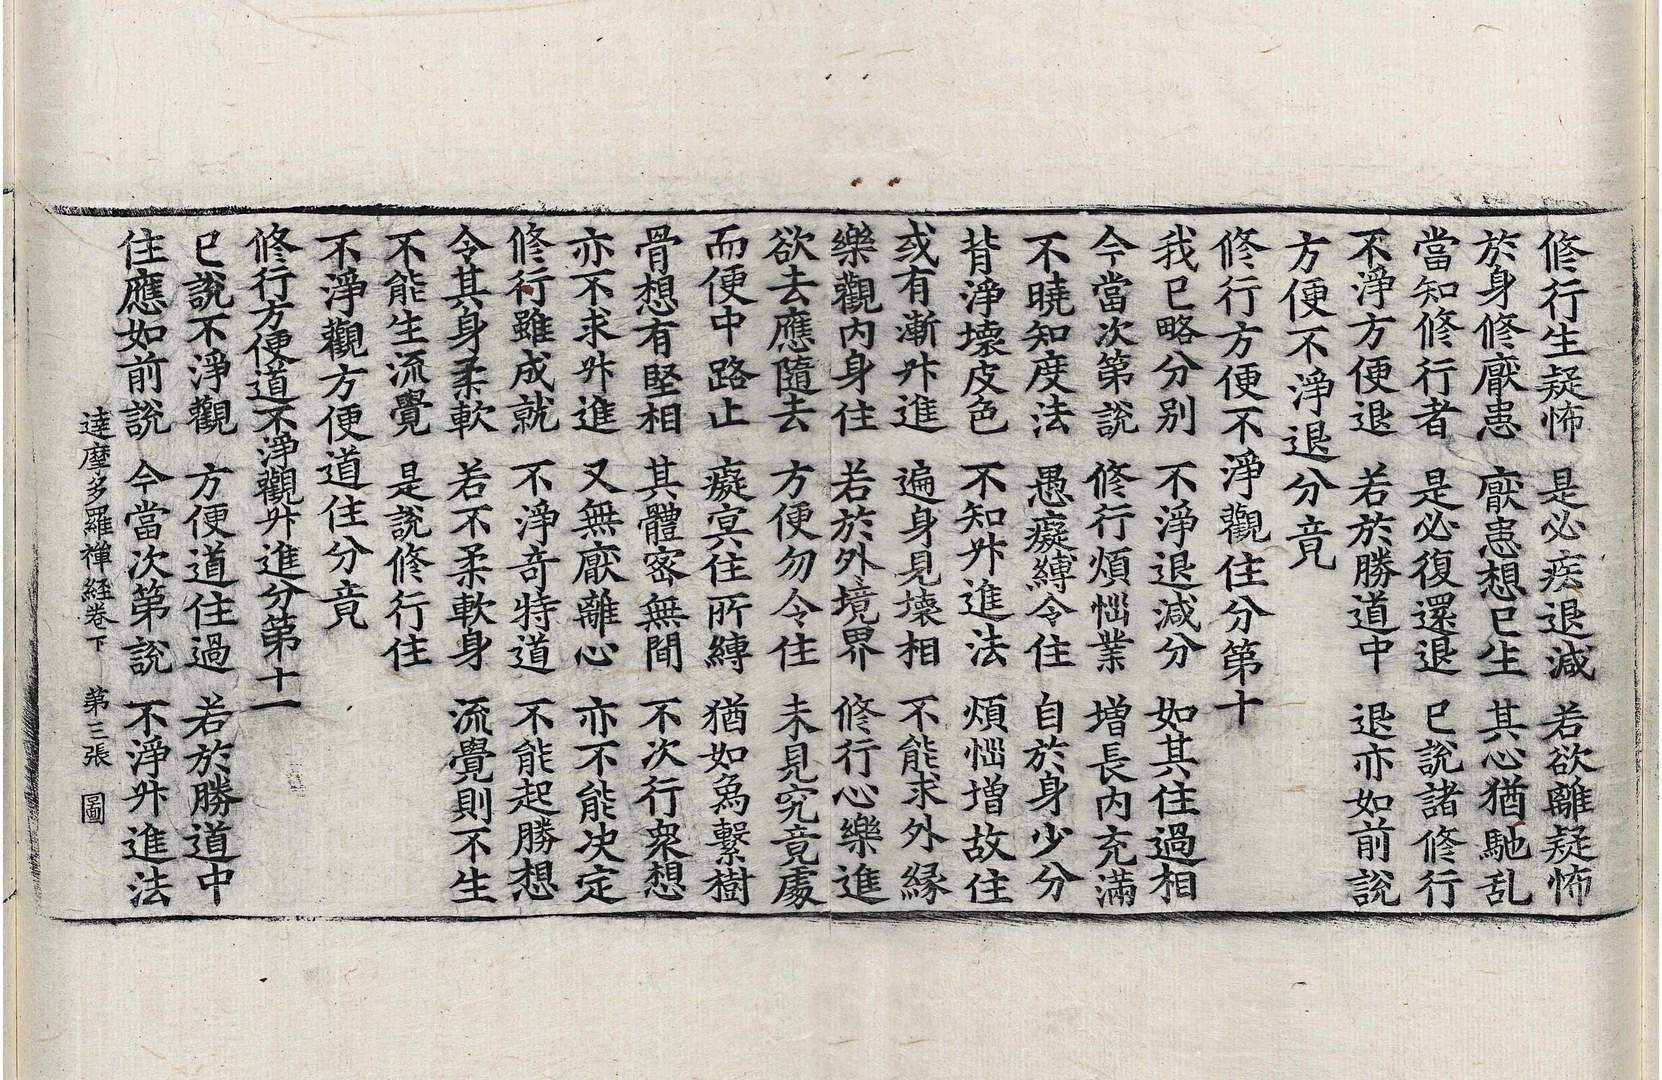 修行生疑怖　是必疾退減　若欲離疑怖
於身修厭患　厭患想已生　其心猶馳乱
當知修行者　是必復還退　已說諸修行
不淨方便退　若於勝道中　退亦如前說
方便不淨退分竟
修行方便不淨觀住分第十
我已略分別　不淨退減分　如其住過相
今當次第說　修行煩惱業　增長內充滿
不曉知度法　愚癡縛令住　自於身少分
背淨壞皮色　不知升進法　煩惱增故住
或有漸升進　遍身見壞相　不能求外緣
樂觀內身住　若於外境界　修行心樂進
欲去應隨去　方便勿令住　未見究竟處
而便中路止　癡冥住所縛　猶如象繫樹
骨想有堅相　其體密無間　不次行衆想
亦不求升進　又無厭離心　亦不能決定
修行雖成就　不淨奇特道　不能起勝想
令其身柔軟　若不柔軟身　流覺則不生
不能生流覺　是說修行住
不淨觀方便道住分竟
修行方便道不淨觀升進分第十一
已說不淨觀　方便道住過　若於勝道中
住應如前說　今當次第說　不淨升進法
達摩多羅禪経卷下　第三張　圖